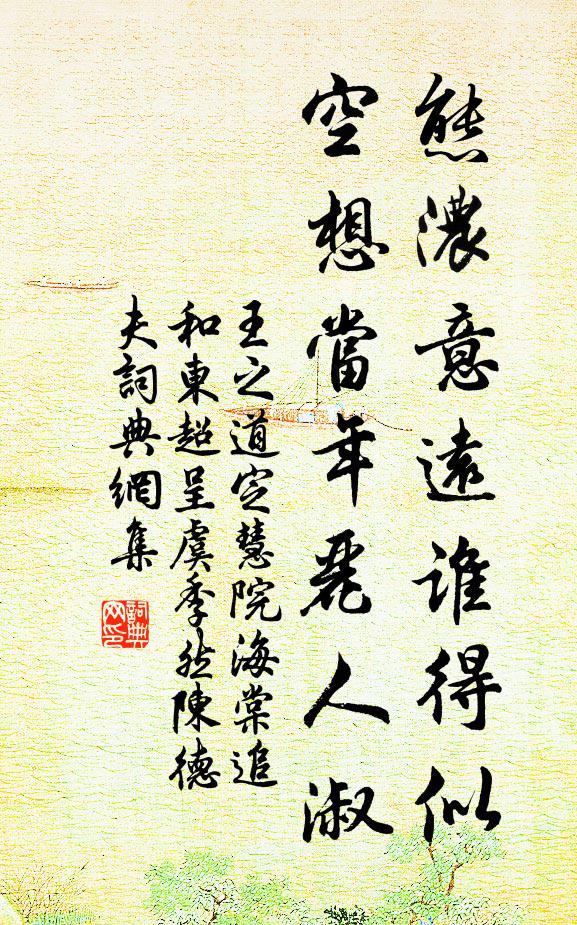 態濃意遠誰得似
空想當年麗人淑
王之道定慧院海棠追
和東超呈虞季然陳德
夫詞典網集
詞典
网印